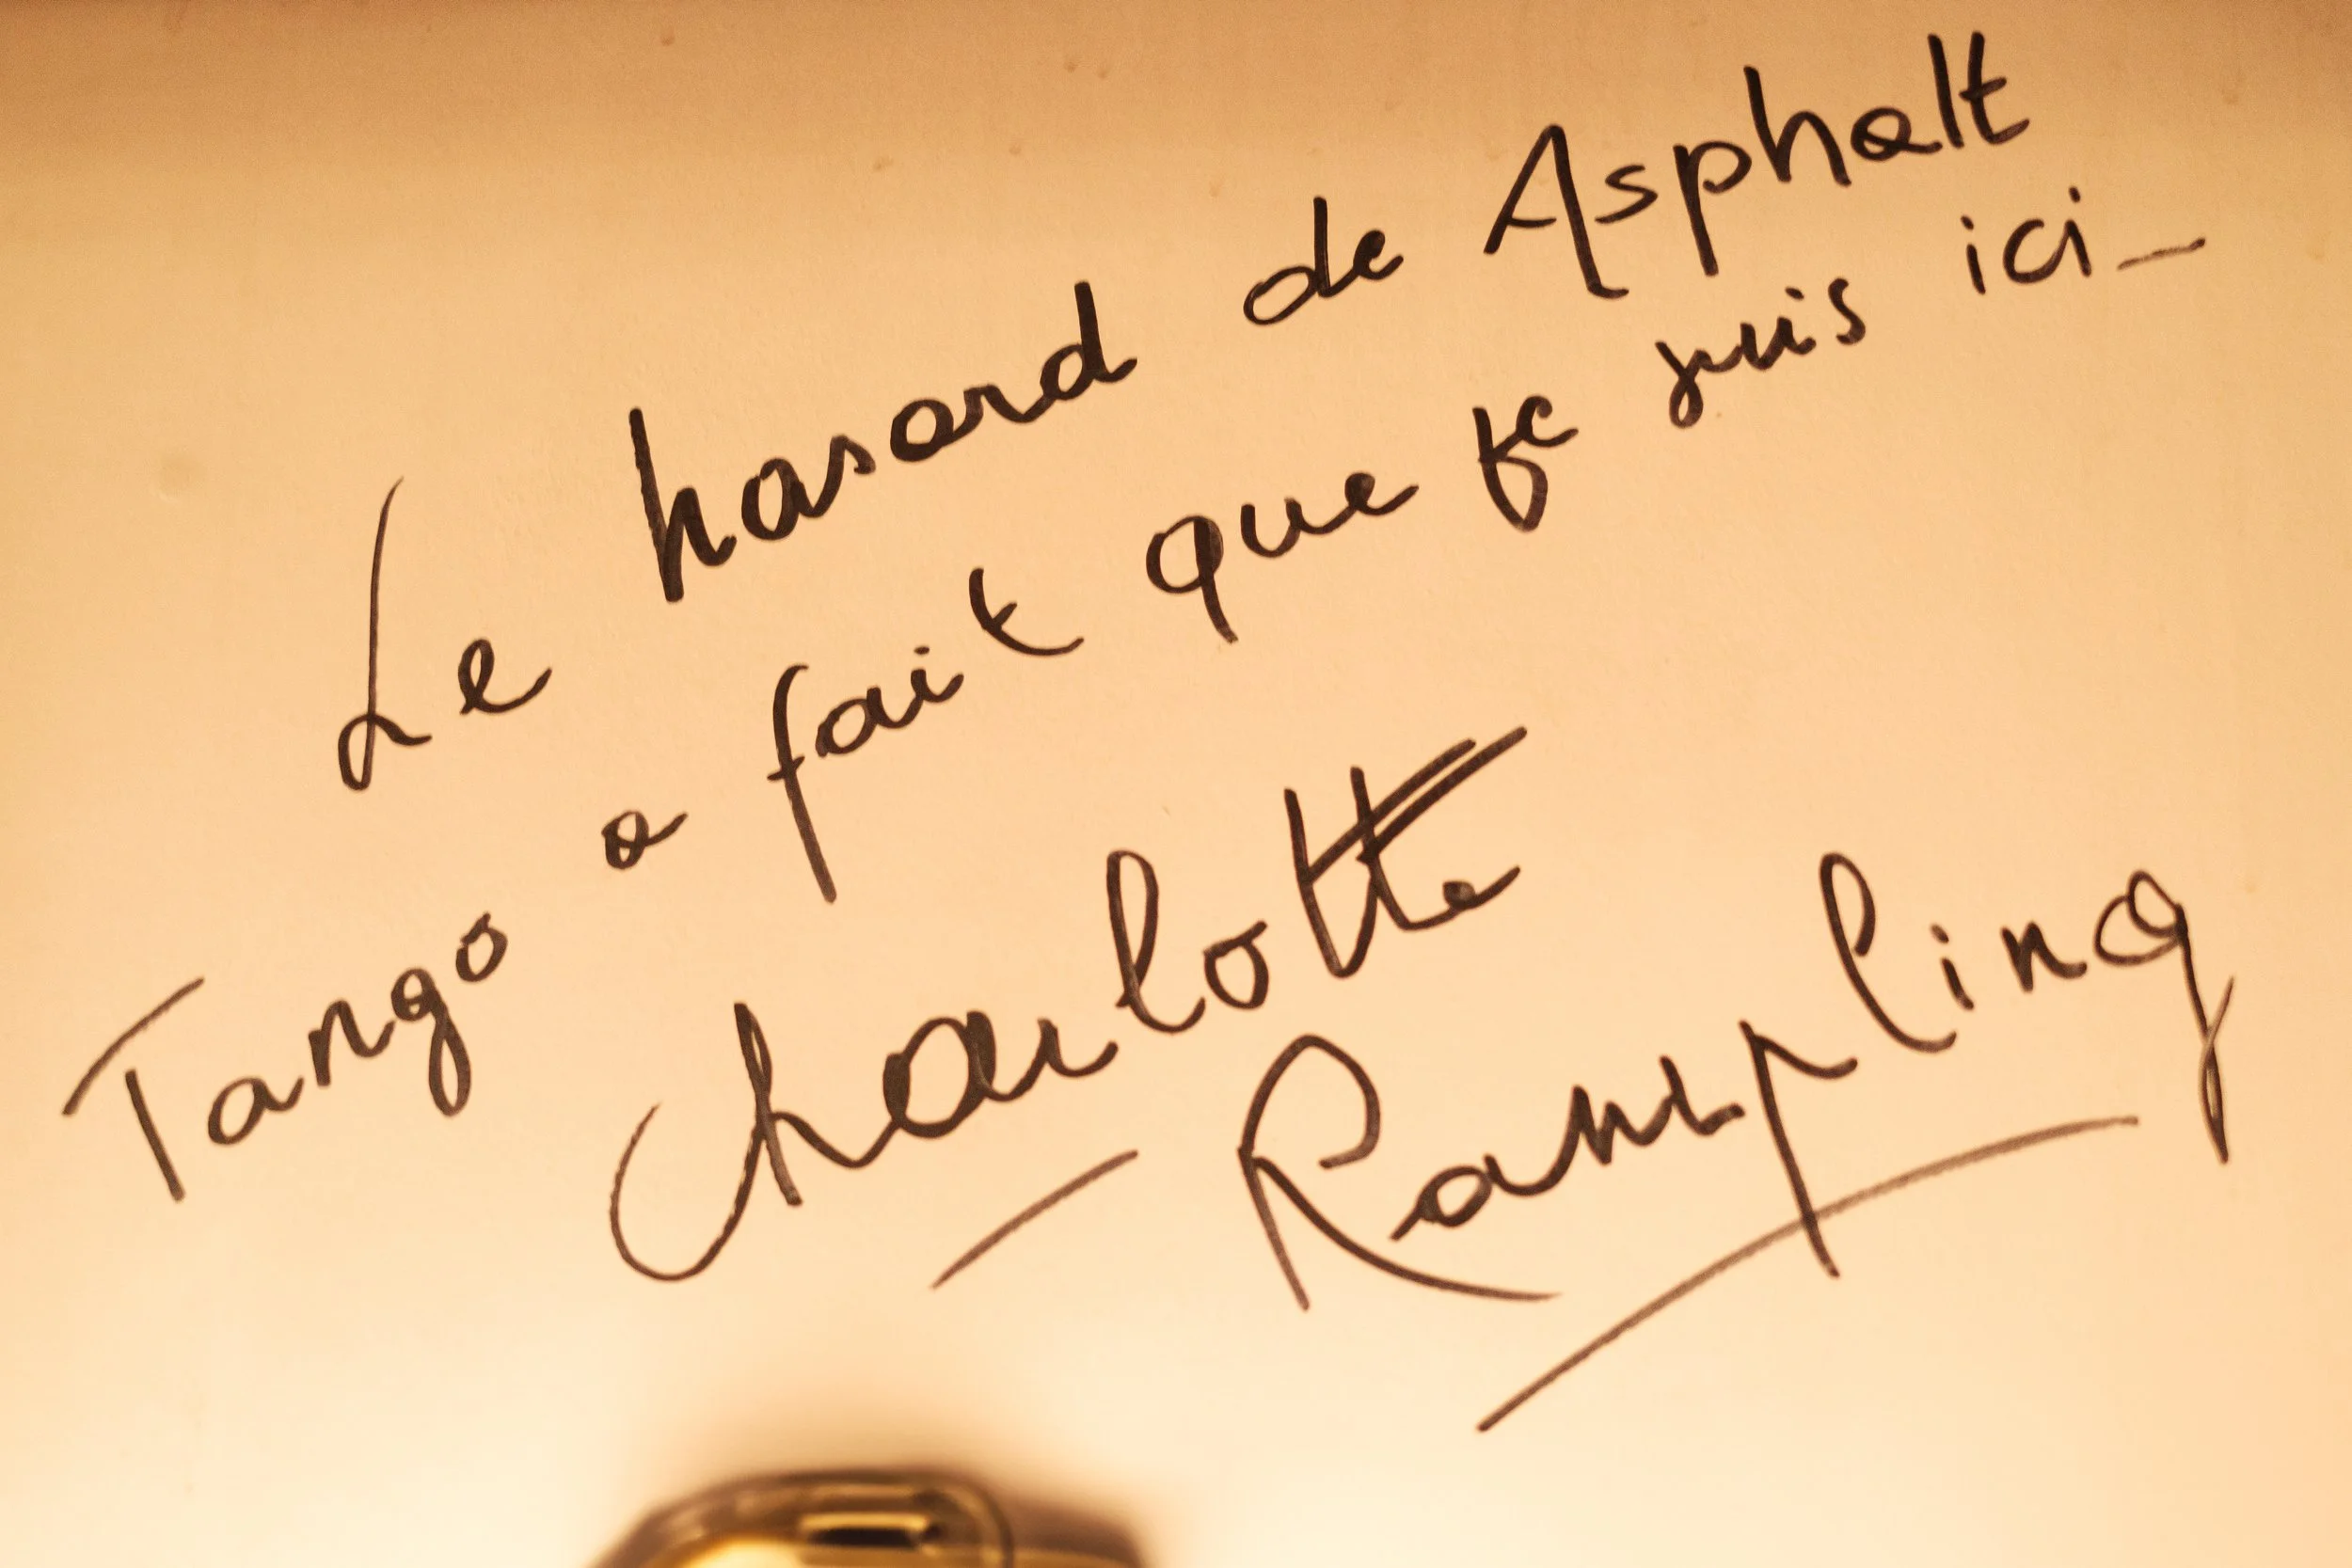 Le hasard de Asphalt
Tango a fait que je suis ici_
Charlotte
Rampling